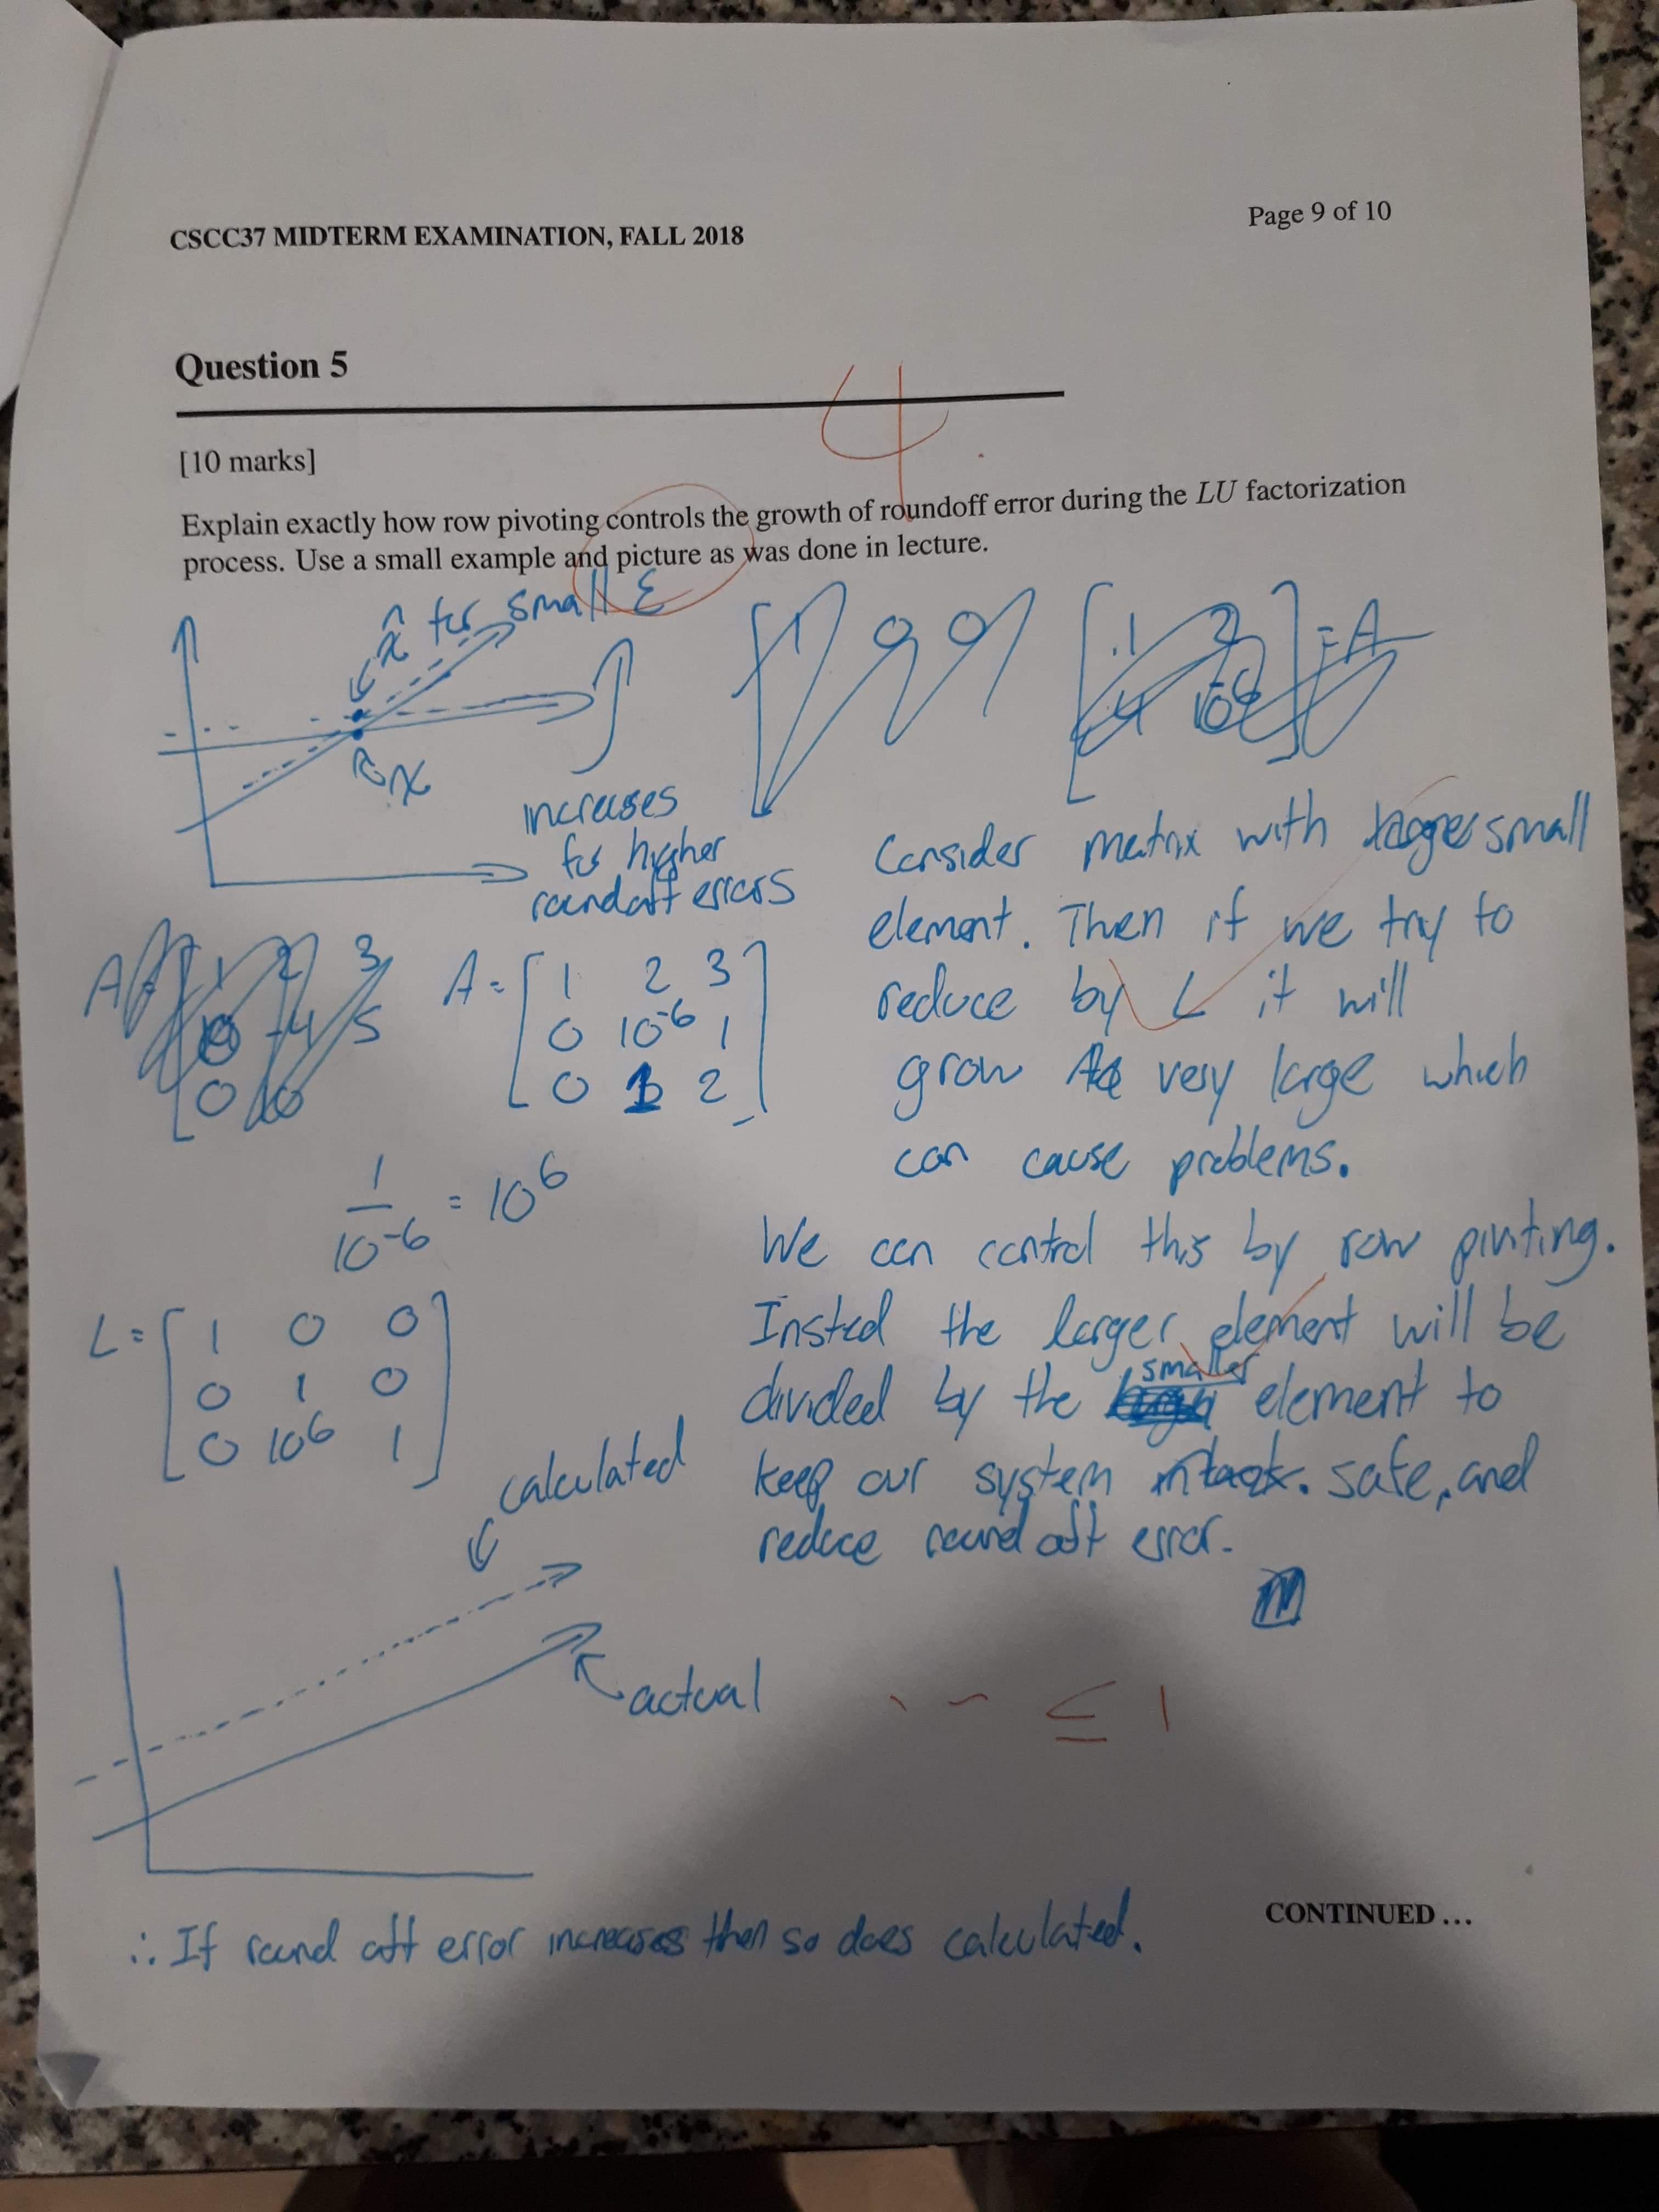 Page 9 of 10
CSCC37 MIDTERM EXAMINATION, FALL 2018
Question 5
4
[10 marks]
Explain exactly how row pivoting controls the growth of roundoff error during the LU factorization
process. Use a small example and picture as was done in lecture.
x̂ for small ε
x
increases
for higher
roundoff errors
Consider matrix with small
element. Then if we try to
reduce by L it will
grow very large which
can cause problems.
A = [ 1 2 3
0 10^-6 1
0 1 2 ]
1/10^-6 = 10^6
We can control this by row pivoting.
Insted the larger element will be
divided by the smaller element to
keep our system safe, and
reduce round off error.
L = [ 1 0 0
0 1 0
0 10^6 1 ]
calculated
actual
≤ 1
∴ If round off error increases then so does calculated.
CONTINUED ...